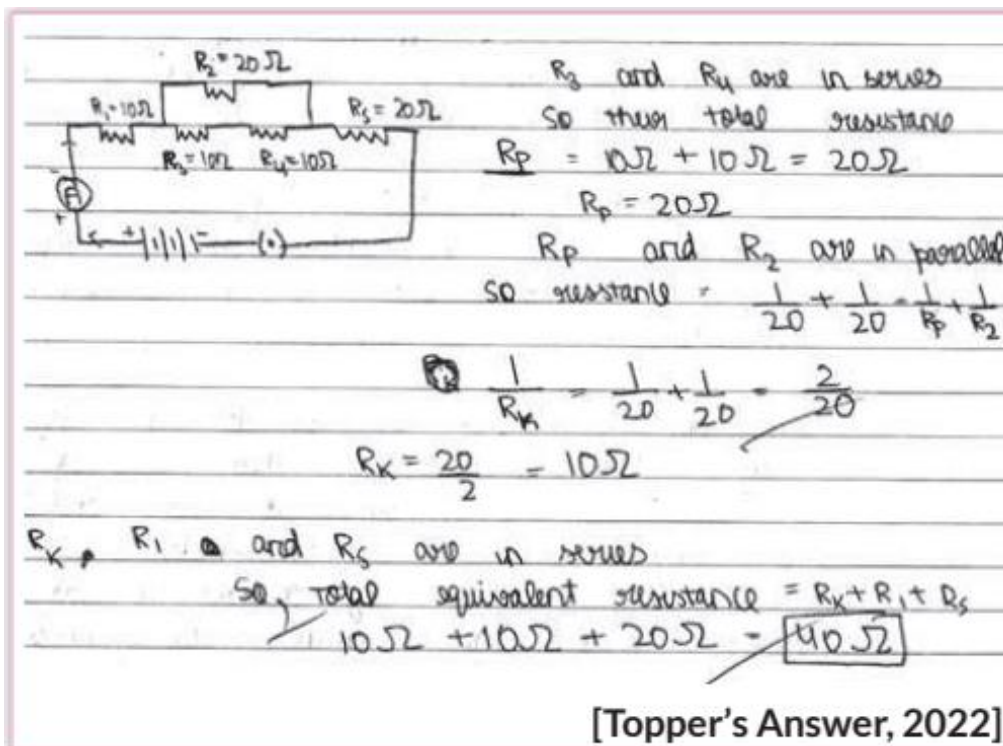 R₂ = 20Ω
R₁ = 10Ω
R₅ = 20Ω
R₃ = 10Ω R₄ = 10Ω
A
+
+ -
(•)
R₃ and R₄ are in series
So their total resistance
Rp = 10Ω + 10Ω = 20Ω
Rp = 20Ω
Rp and R₂ are in parallel
so resistance = 1/20 + 1/20 = 1/Rp + 1/R₂
1/Rk = 1/20 + 1/20 = 2/20
Rk = 20/2 = 10Ω
Rk, R₁ and R₅ are in series
So, Total equivalent resistance = Rk + R₁ + R₅
10Ω + 10Ω + 20Ω = 40Ω
[Topper's Answer, 2022]